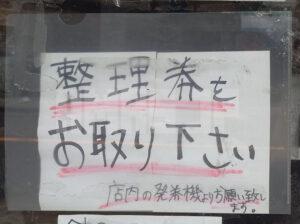 整理券を
お取り下さい
店内の発券機よりお願い致し
ます。